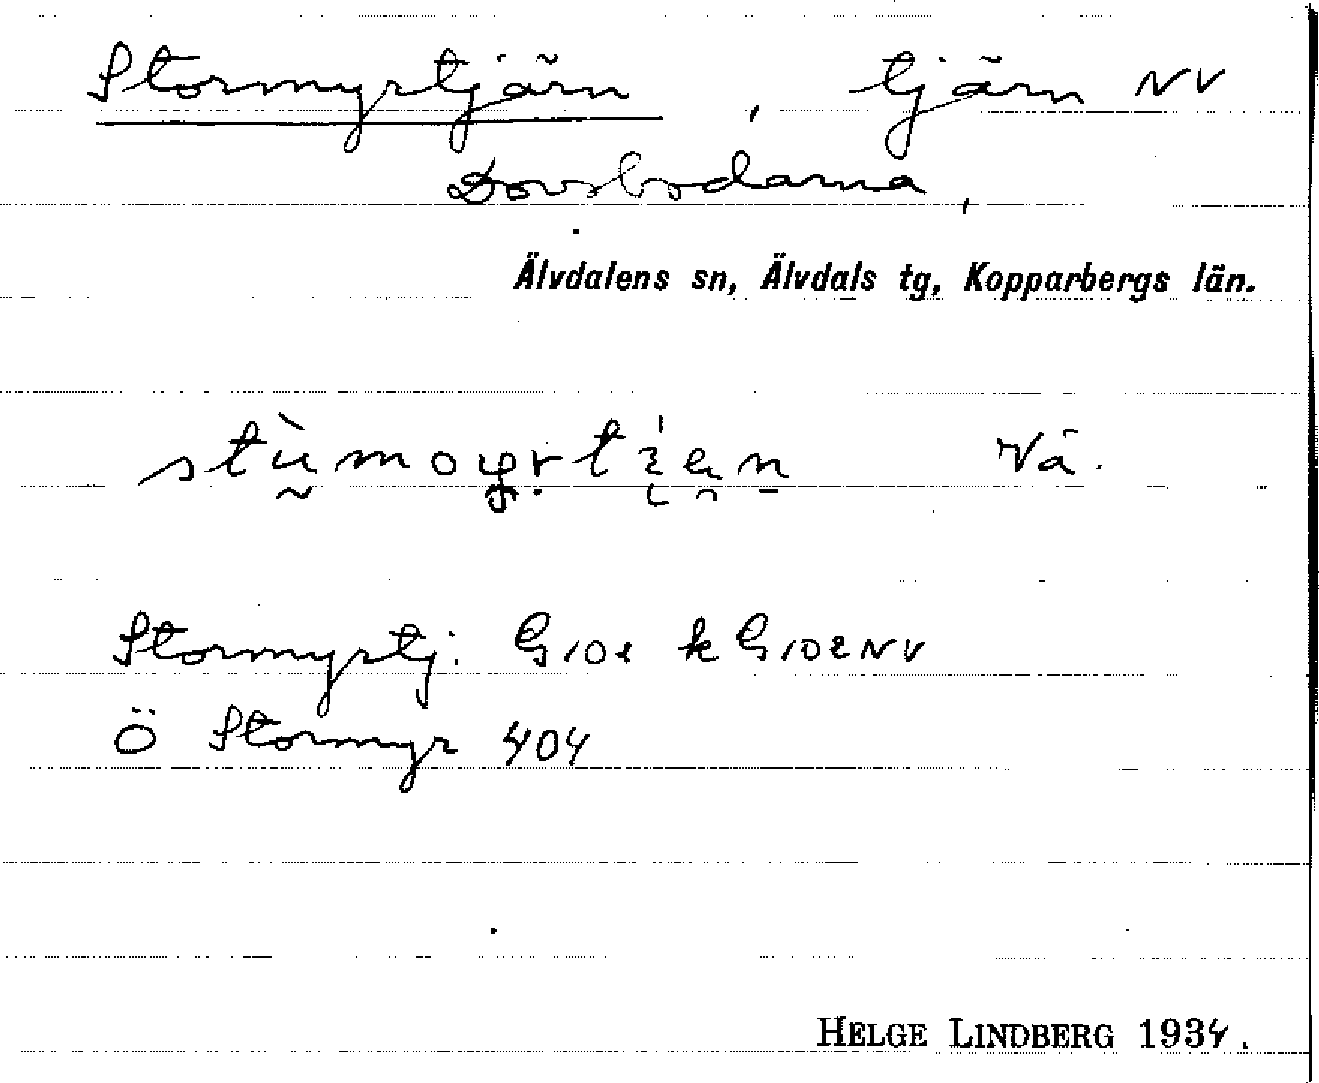 Stormyrtjärn, tjärn NV
Dovsbodarna,
Älvdalens sn, Älvdals tg, Kopparbergs län.
Vä.
Stormyrtj: G 102 k G 102 NV
Ö Stormyr 404
HELGE LINDBERG 1934.